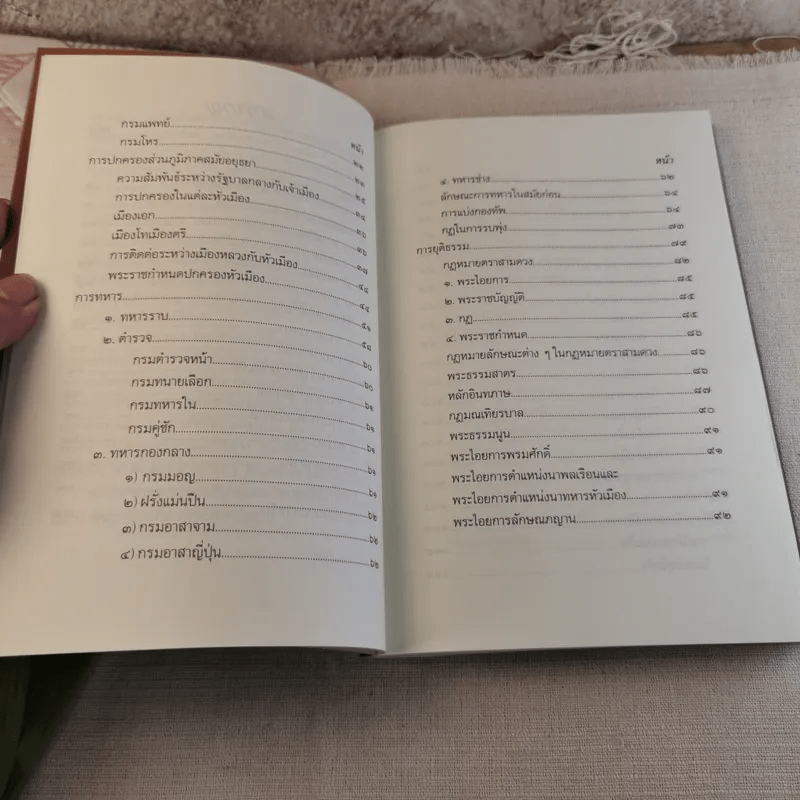 หน้า
กรมแพทย์ ๒๒
กรมโหร ๒๓
การปกครองส่วนภูมิภาคสมัยอยุธยา ๒๕
ความสัมพันธ์ระหว่างรัฐบาลกลางกับเจ้าเมือง ๓๔
การปกครองในแต่ละหัวเมือง ๓๖
เมืองเอก ๓๖
เมืองโทเมืองตรี ๓๗
การติดต่อระหว่างเมืองหลวงกับหัวเมือง ๔๔
พระราชกำหนดปกครองหัวเมือง ๔๔
การทหาร ๕๑
๑. ทหารราบ ๕๘
๒. ตำรวจ ๖๐
กรมตำรวจหน้า ๖๐
กรมทนายเลือก ๖๑
กรมทหารใน ๖๑
กรมคู่ชัก ๖๑
๓. ทหารกองกลาง ๖๑
๑) กรมมอญ ๖๑
๒) ฝรั่งแม่นปืน ๖๒
๓) กรมอาสาจาม ๖๒
๔) กรมอาสาญี่ปุ่น ๖๒
หน้า
๔. ทหารช่าง ๖๒
ลักษณะการทหารในสมัยก่อน ๖๔
การแบ่งกองทัพ ๖๔
กฎในการรบพุ่ง ๗๓
การยุติธรรม ๗๙
กฎหมายตราสามดวง ๘๒
๑. พระไอยการ ๘๕
๒. พระราชบัญญัติ ๘๕
๓. กฎ ๘๕
๔. พระราชกำหนด ๘๖
กฎหมายลักษณะต่าง ๆ ในกฎหมายตราสามดวง ๘๖
พระธรรมสาตร ๘๖
หลักอินทภาษ ๘๗
กฎมณเทียรบาล ๙๐
พระธรรมนูน ๙๑
พระไอยการพรมศักดิ์ ๙๑
พระไอยการตำแหน่งนาพลเรือนและ
พระไอยการตำแหน่งนาทหารหัวเมือง ๙๑
พระไอยการลักษณภญาน ๙๒